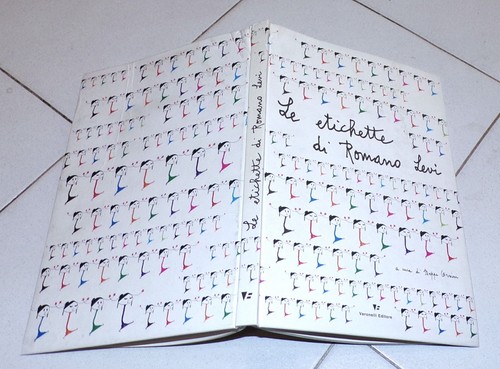 Le etichette di Romano Levi
Le etichette
di Romano Levi
a cura di
Veronelli Editore